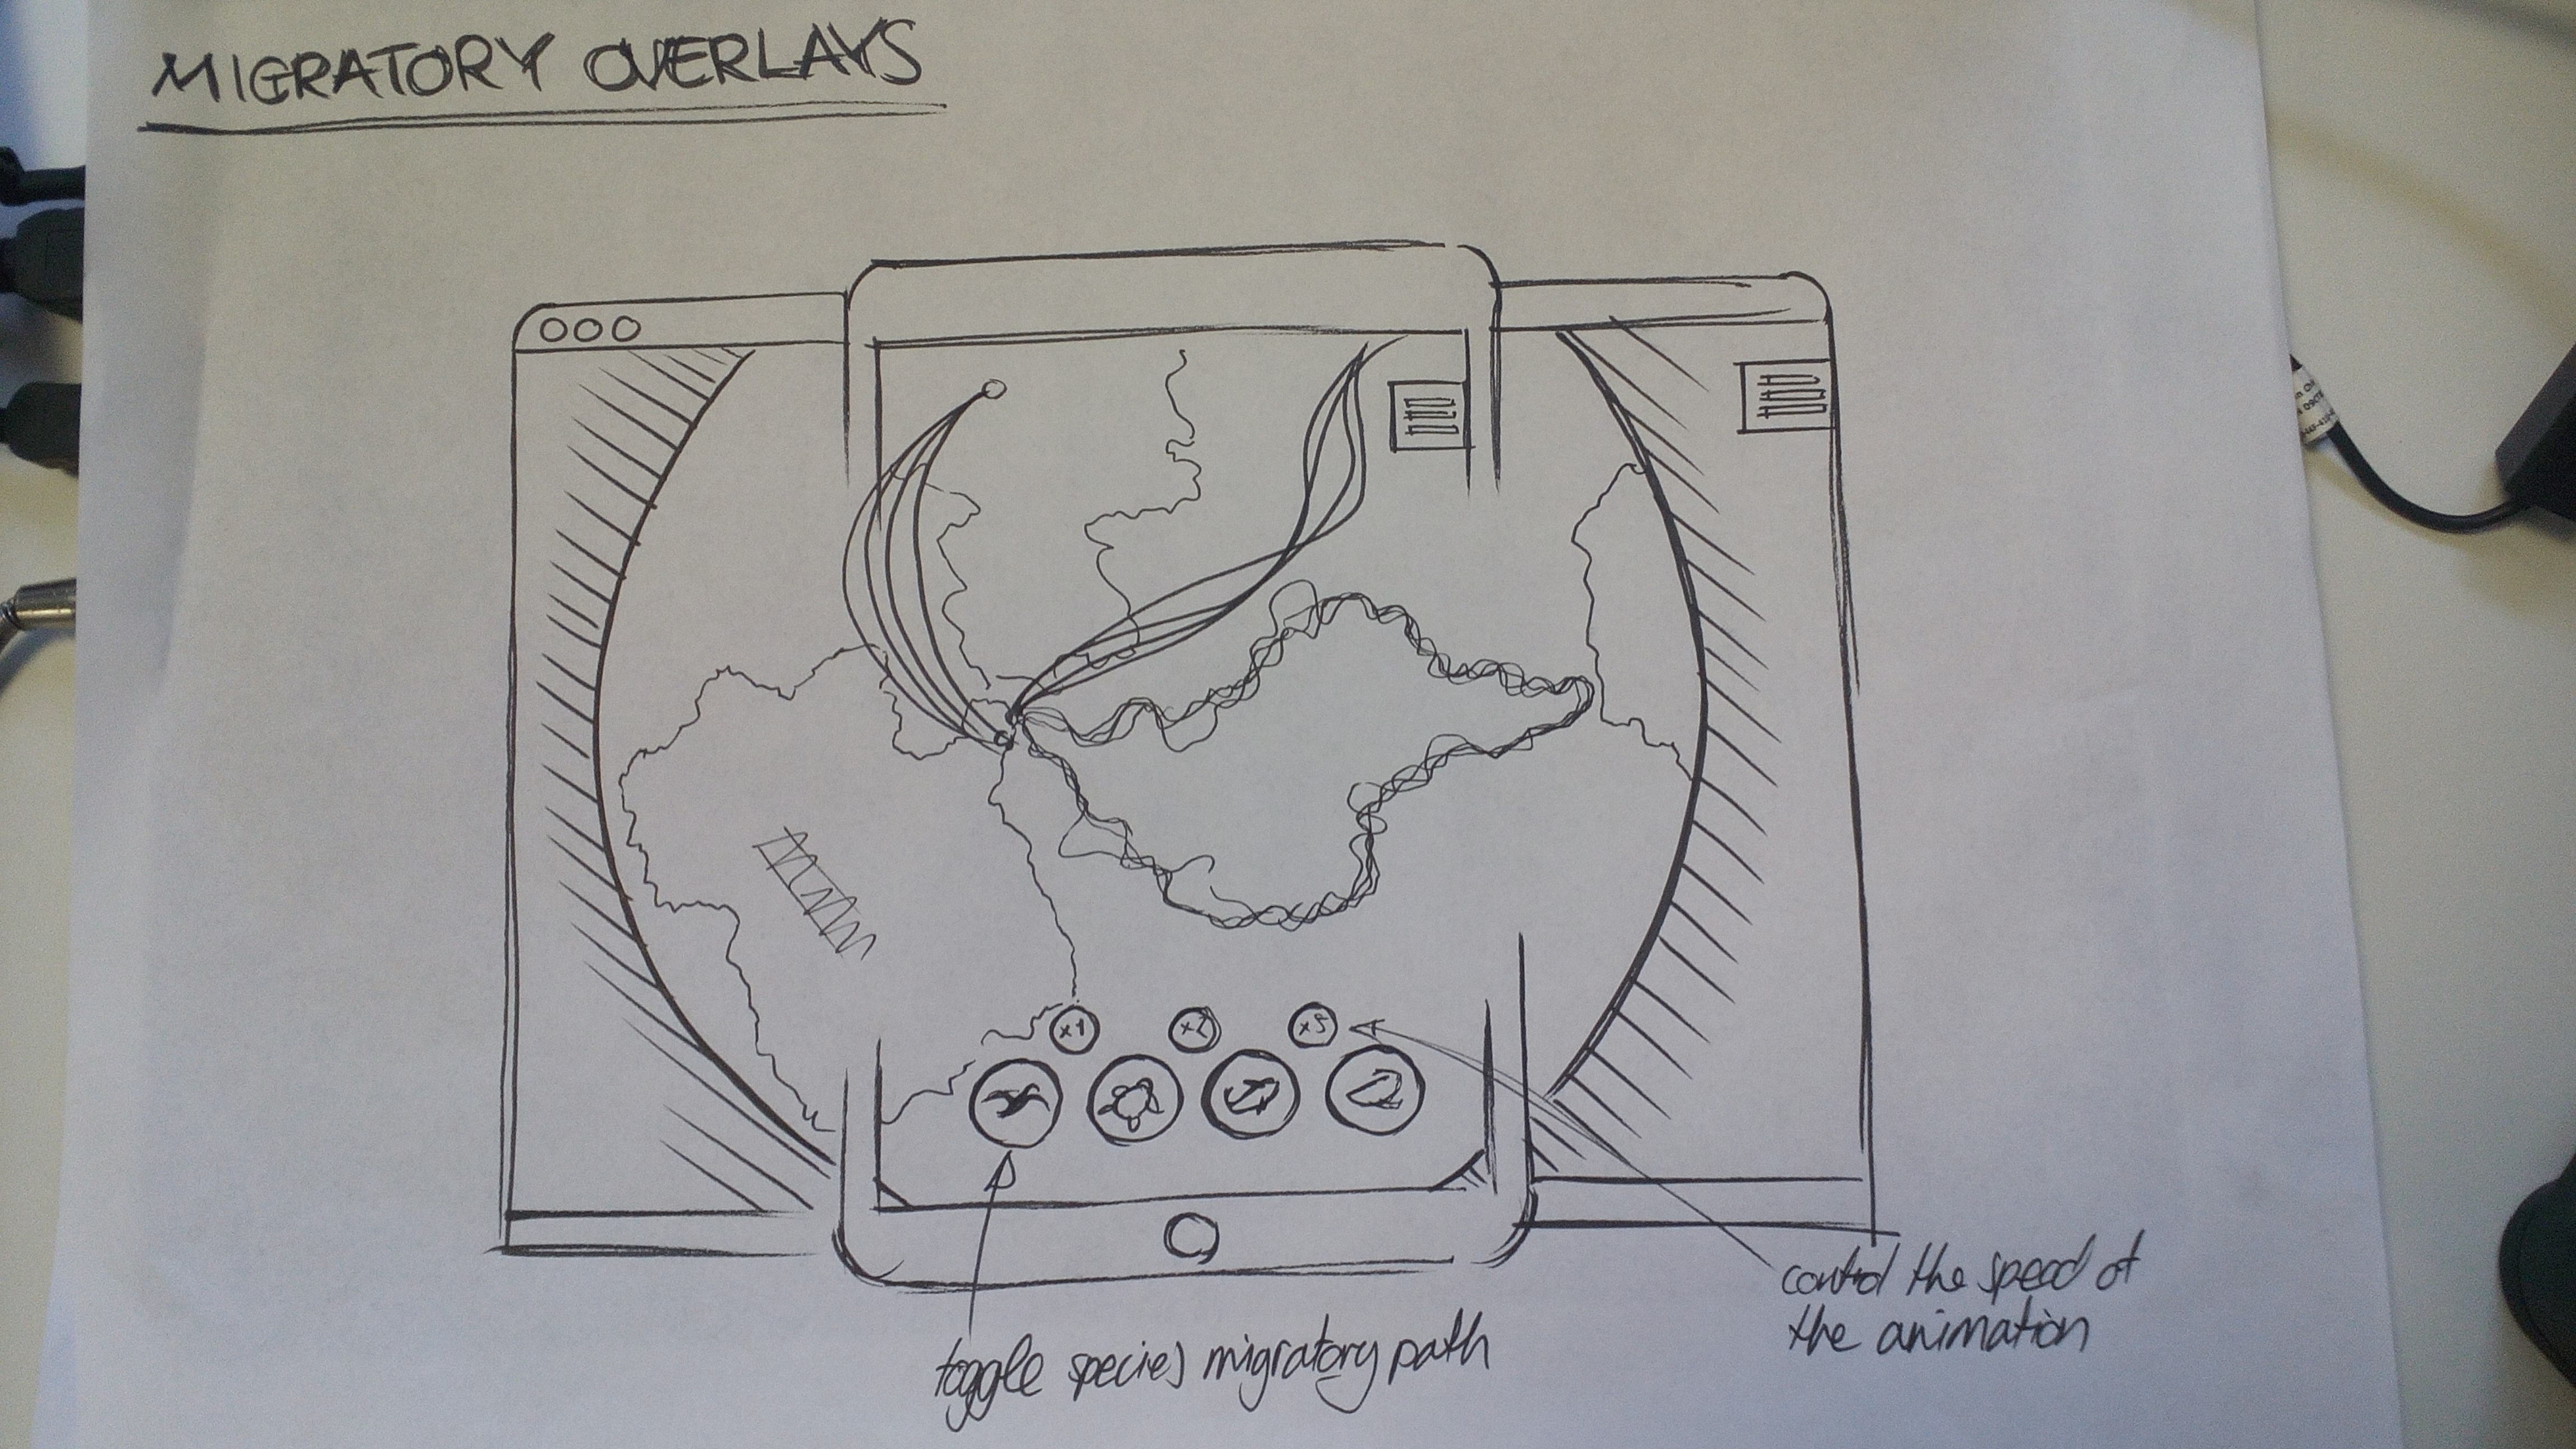 MIGRATORY OVERLAYS
x1 x2 x3
control the speed of
the animation
toggle species migratory path